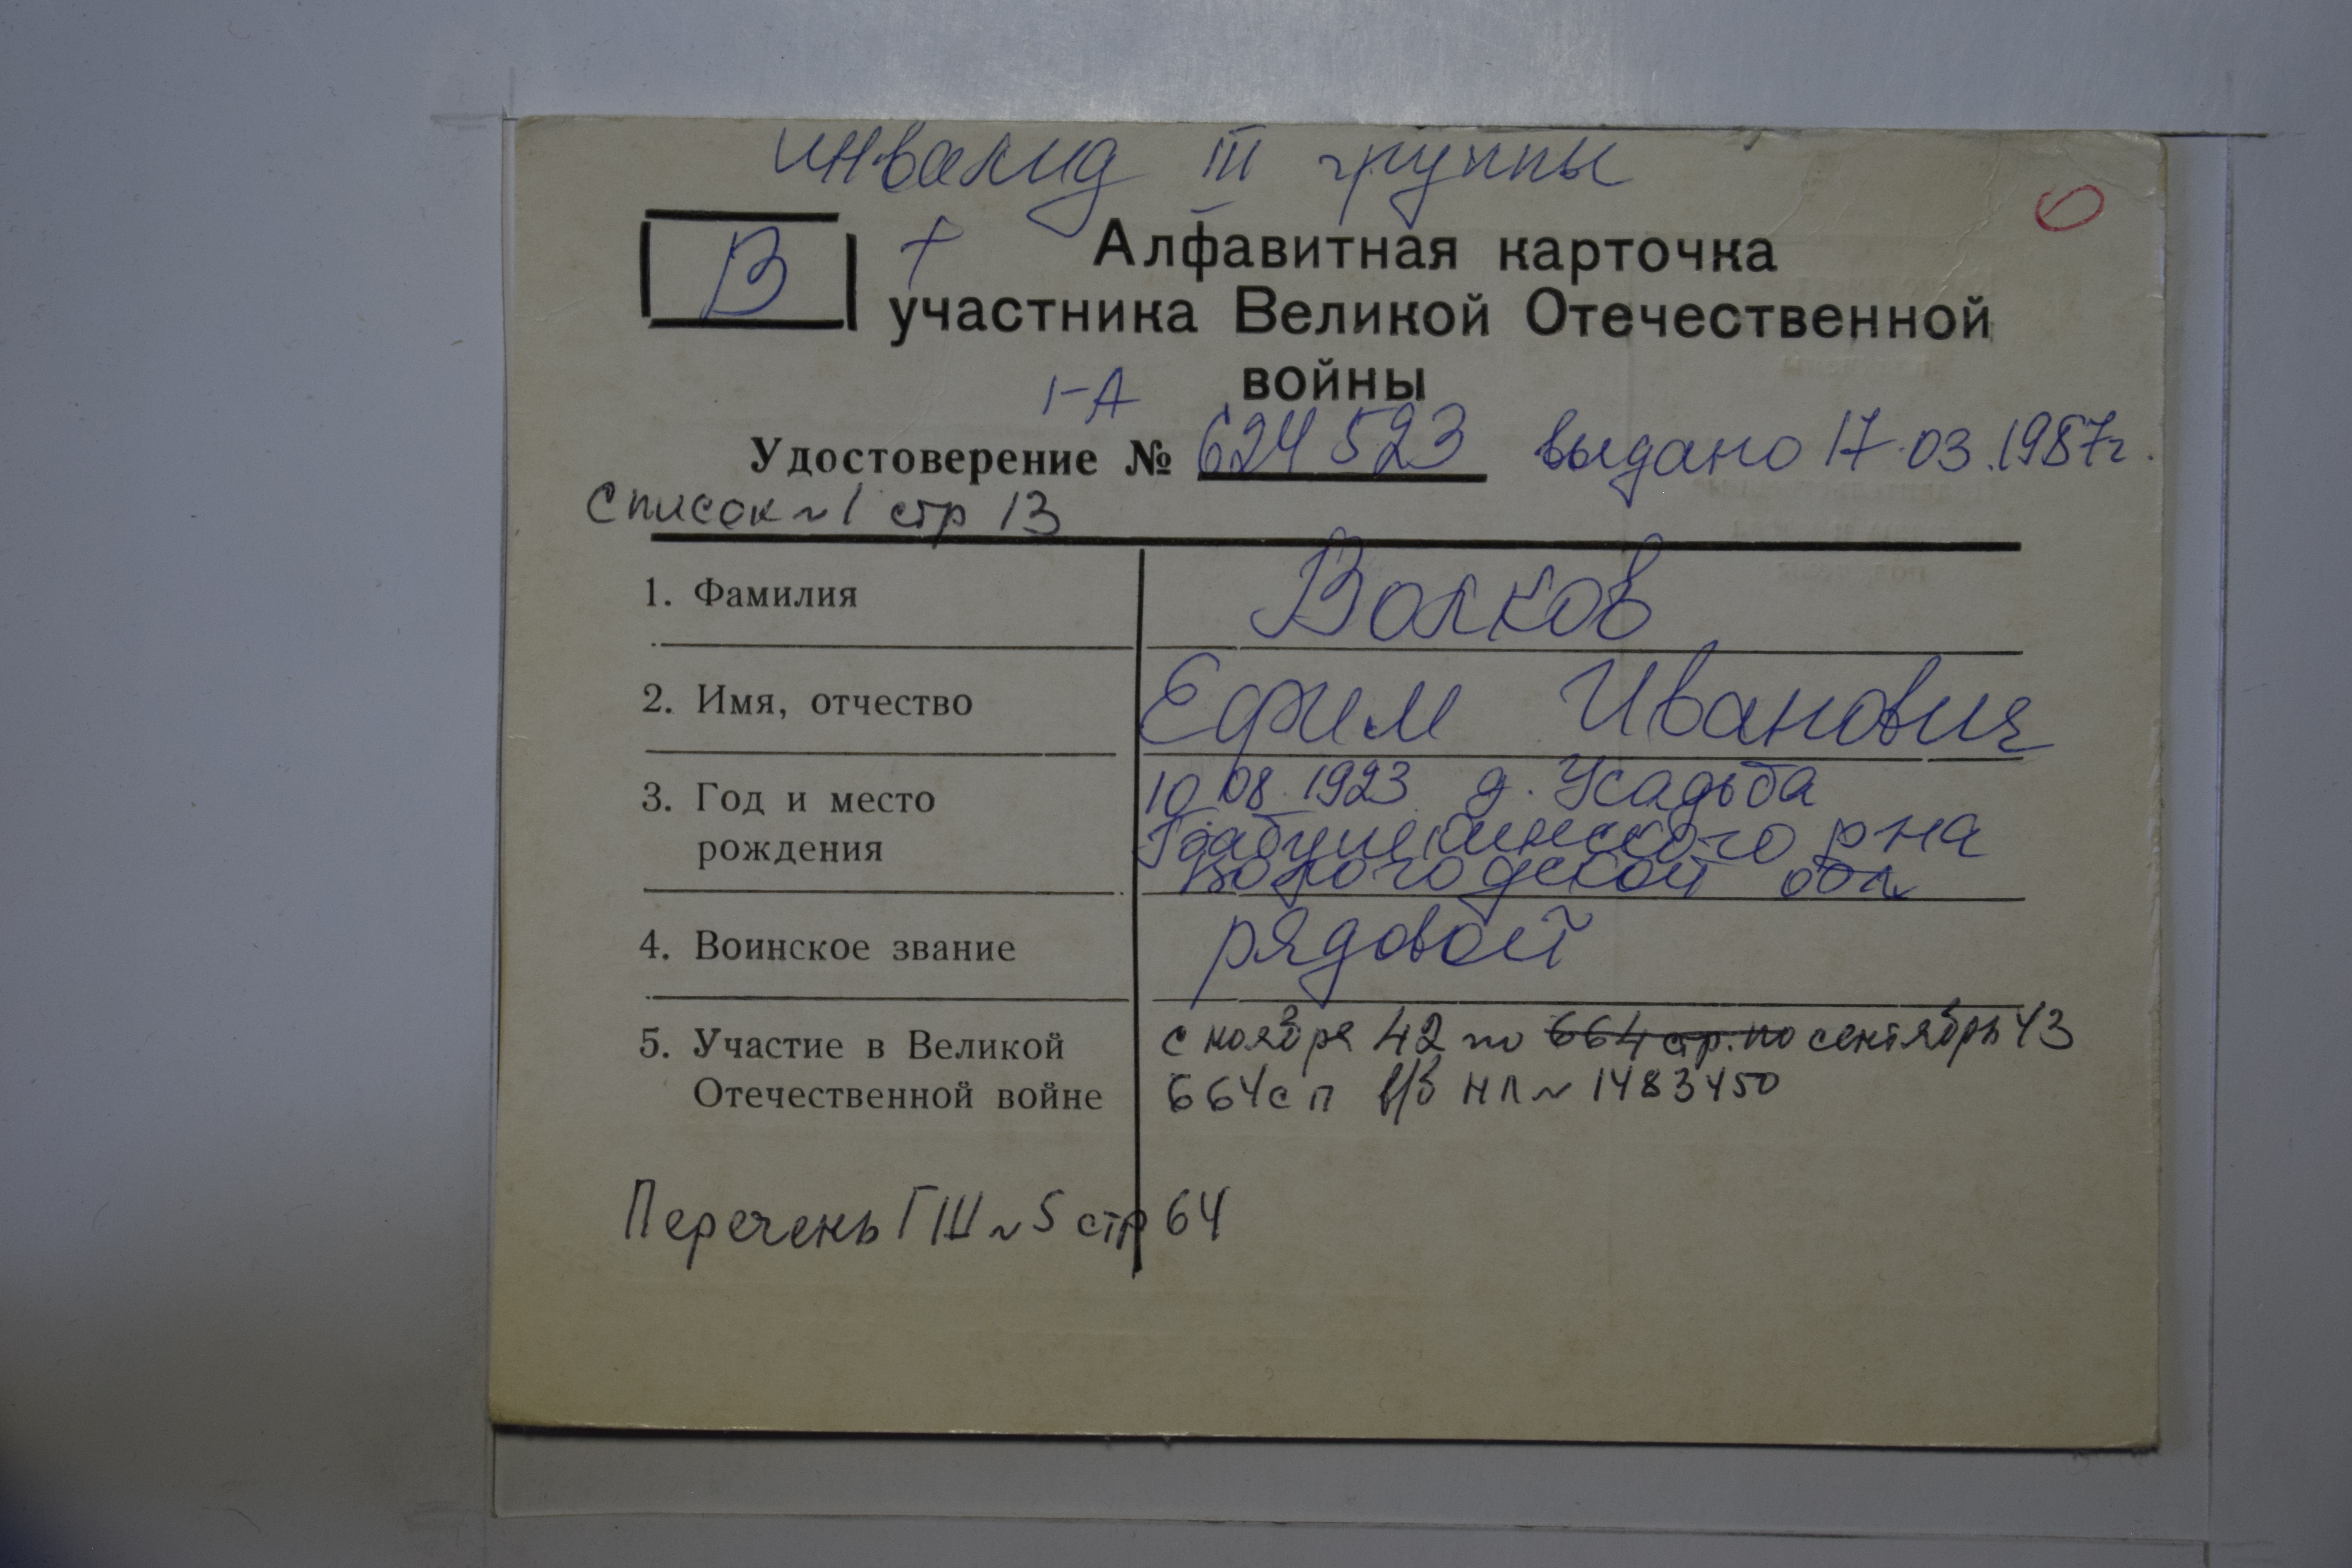 инвалид III группы
В + Алфавитная карточка
участника Великой Отечественной
войны
1-А
Удостоверение № 624523 выдано 17.03.1987г.
Список ~ 1 стр 13
1. Фамилия Волков
2. Имя, отчество Ефим Иванович
3. Год и место рождения 10 08. 1923 д. Усадьба
Бабушкинского р на
Вологодской обл
4. Воинское звание рядовой
5. Участие в Великой Отечественной войне с ноября 42 по 664 стр. по сентябрь 43
664 сп в/б НЛ ~ 1483450
Перечень ГШ ~ 5 стр 64